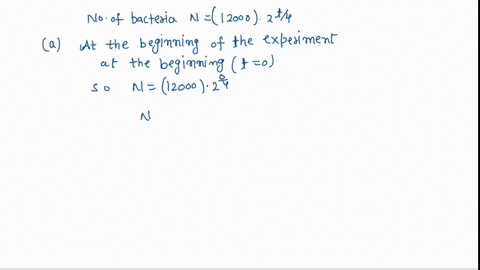 No. of bacteria N = (12000) · 2^{t/4}
(a) At the beginning of the experiment
at the beginning (t = 0)
so N = (12000) · 2^{0/4}
N